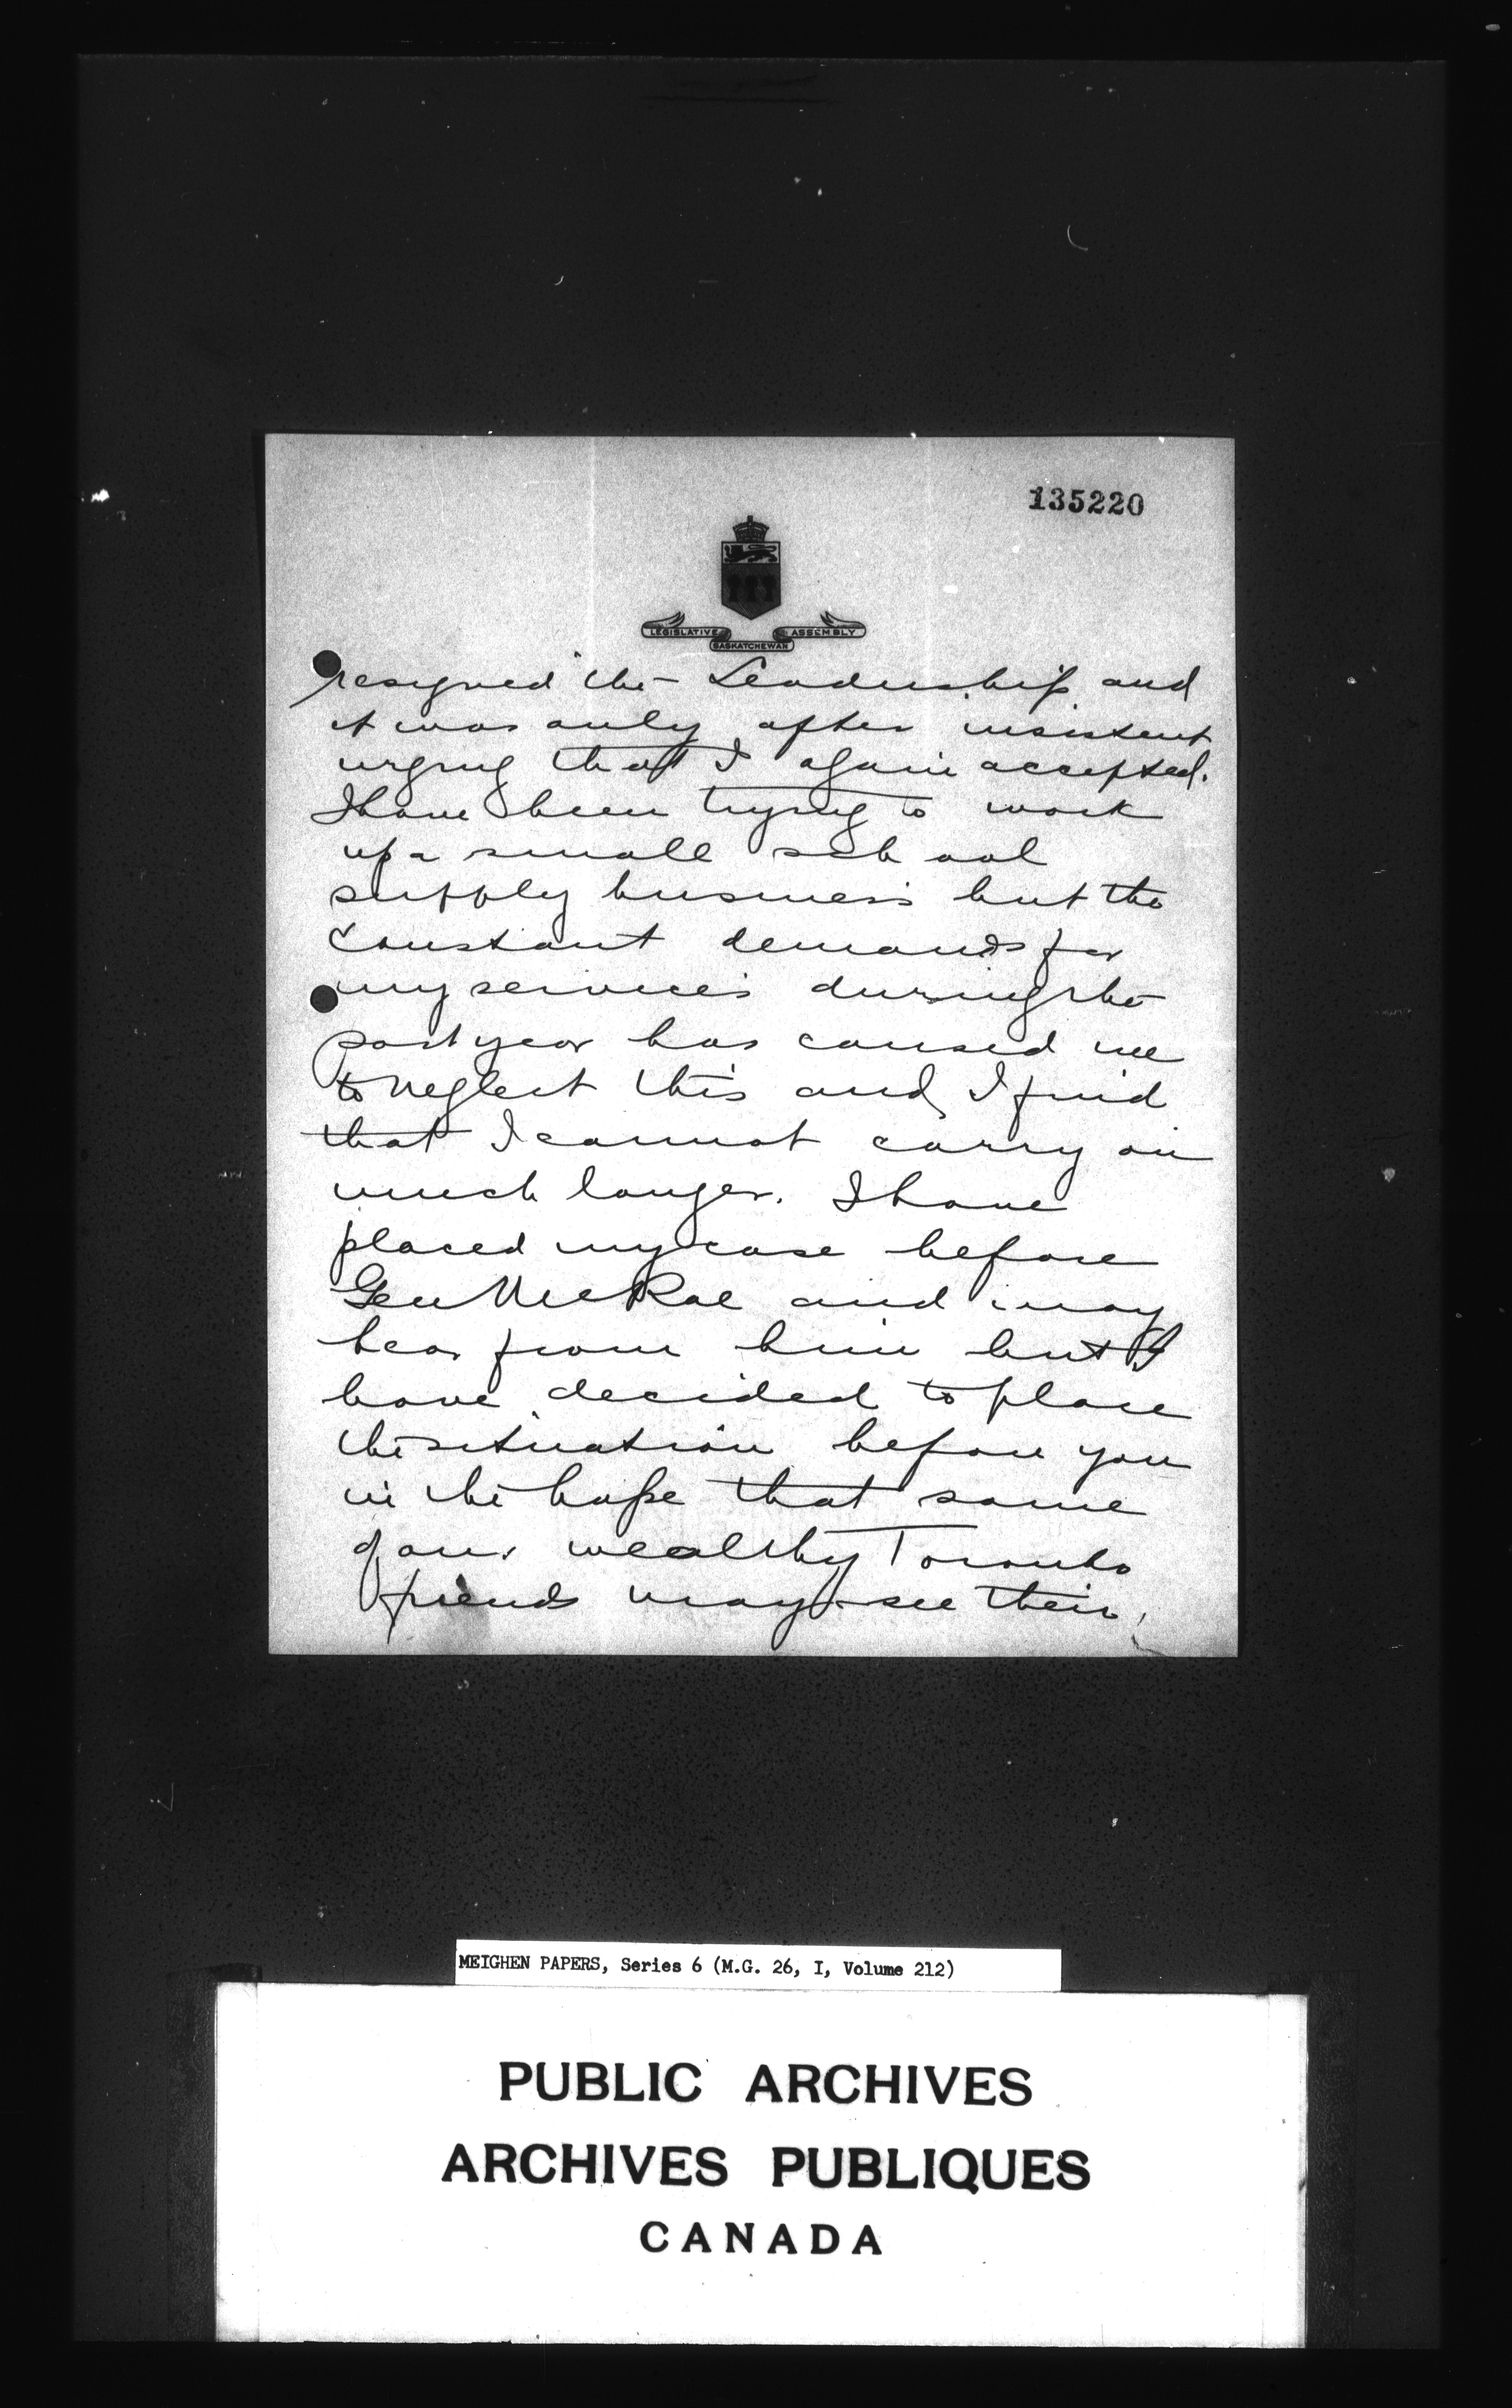 135220
LEGISLATIVE ASSEMBLY
SASKATCHEWAN
resigned the Leadership and
it was only after insistent
urging that I again accepted.
I have been trying to work
up a small school
supply business but the
constant demands for
my services during the
past year has caused me
to neglect this and I find
that I cannot carry on
much longer. I have
placed my case before
Gen McRae and may
hear from him but I
have decided to place
the situation before you
in the hope that some
of our wealthy Toronto
friends may see their
MEIGHEN PAPERS, Series 6 (M.G. 26, I, Volume 212)
PUBLIC ARCHIVES
ARCHIVES PUBLIQUES
CANADA